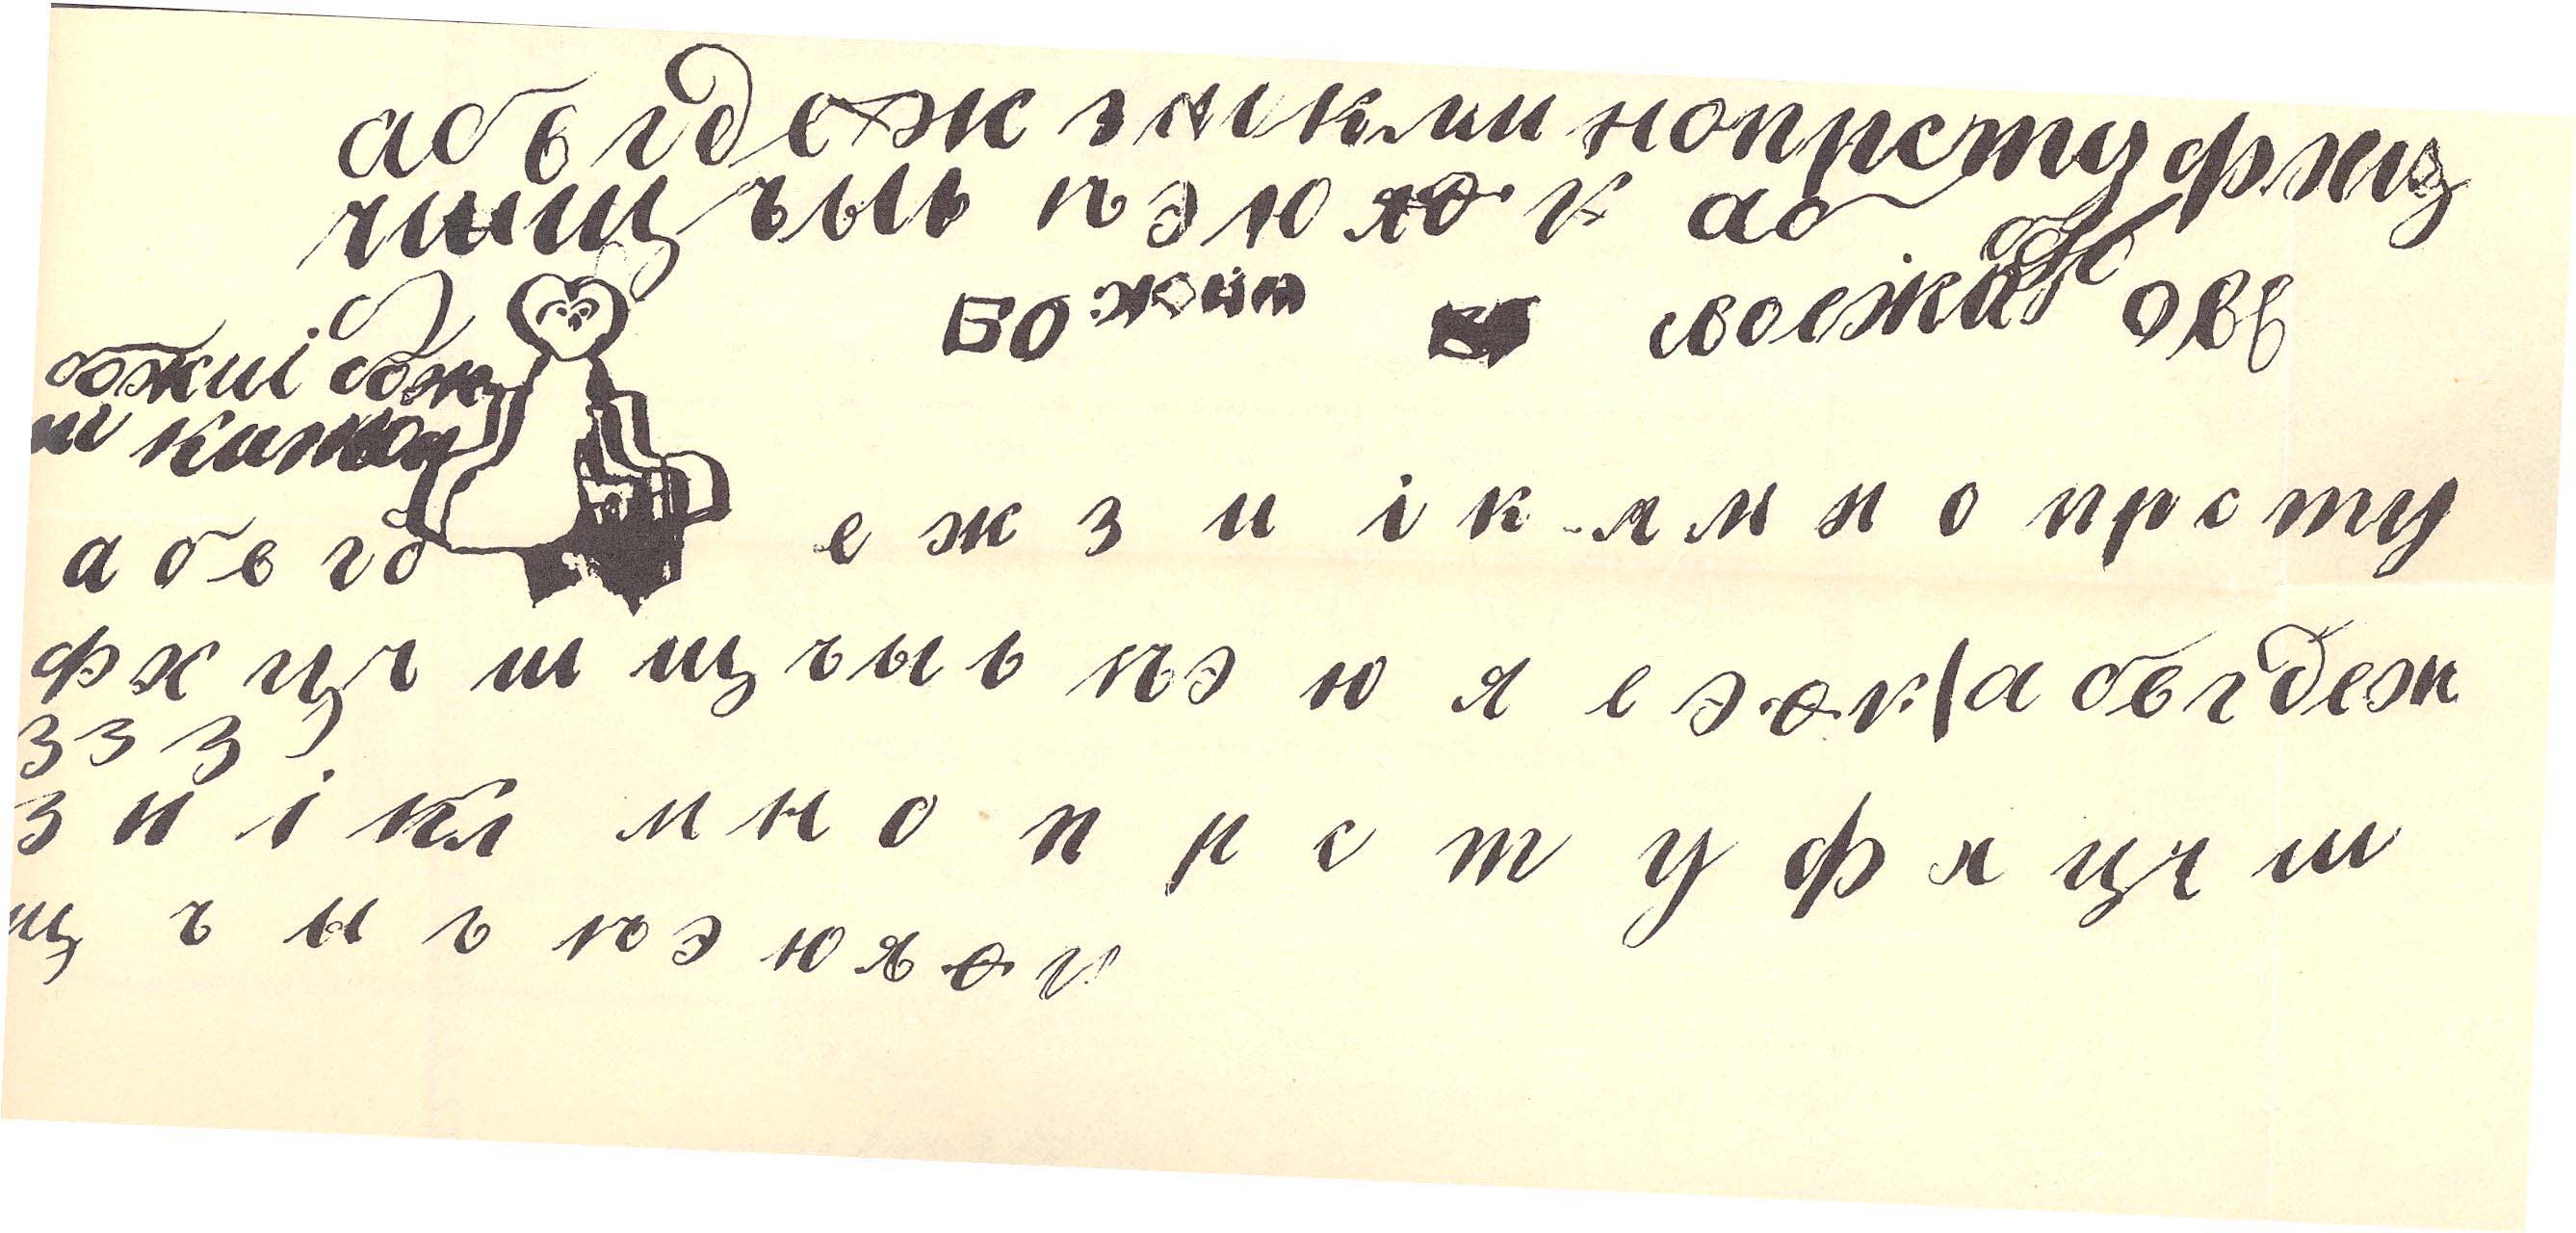 а б в г д е ж з и і к л м н о п р с т у ф х ц
ч ш щ ъ ы ь ѣ э ю я ѳ ѵ а б
божій своежа о в в
божиі бож
а б в г д е ж з и і к л м н о п р с т у
ф х ц ч ш щ ъ ы ь ѣ э ю я е э ѳ ѵ а б в г д е ж
з з з
з и і к л м н о п р с т у ф х ц ч ш
щ ъ ы ь ѣ э ю я ѳ ѵ